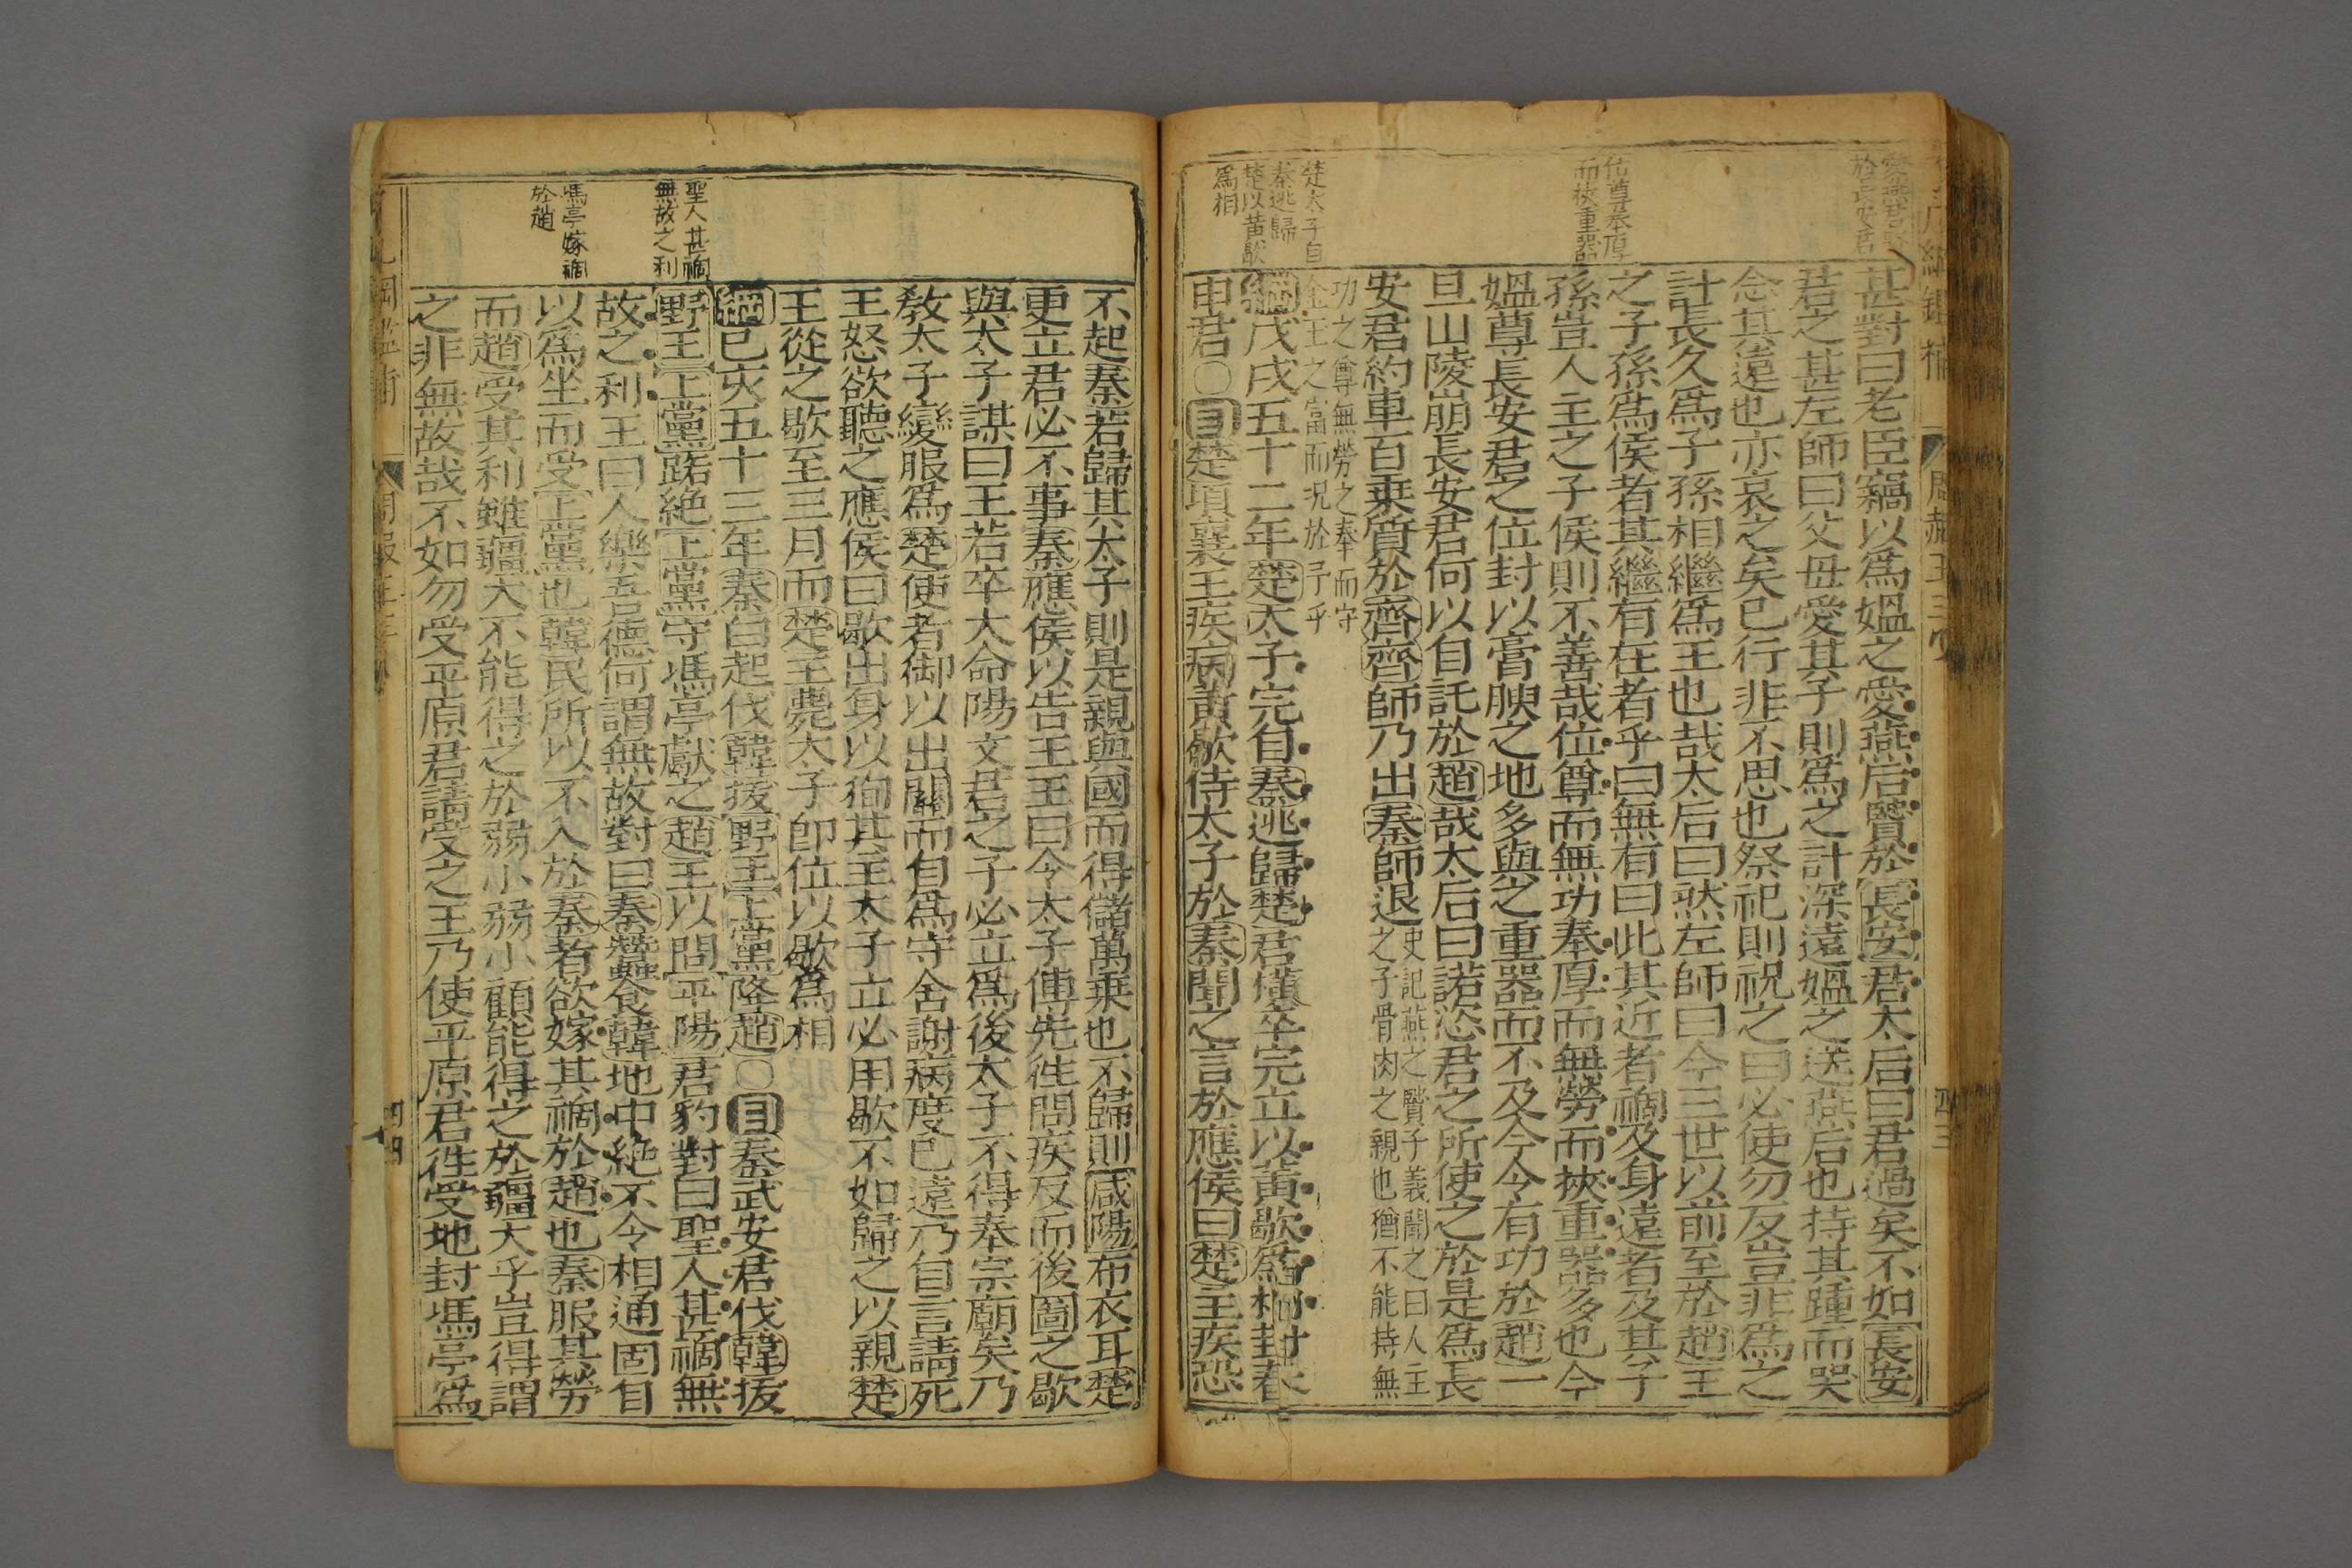 甚對曰老臣竊以爲媼之愛燕后賢於長安君太后曰君過矣不如長安
君之甚左師曰父母愛其子則爲之計深遠媼之送燕后也持其踵而哭
念其遠也亦哀之矣已行非不思也祭祀則祝之曰必使勿反豈非爲之
計長久爲子孫相繼爲王也哉太后曰然左師曰今三世以前至於趙王
之子孫爲侯者其繼有在者乎曰無有曰此其近者禍及身遠者及其子
孫豈人主之子侯則不善哉位尊而無功奉厚而無勞而挾重器多也今
媼尊長安君之位封以膏腴之地多與之重器而不及今今有功於趙一
旦山陵崩長安君何以自託於趙哉太后曰諾恣君之所使之於是爲長
安君約車百乗質於齊齊師乃出秦師退
史記燕之賢子義聞之曰人主
之子骨肉之親也猶不能持無
功之尊無勞之奉而守
金玉之富而况於予乎
綱戊戌五十二年楚太子完自秦逃歸楚君橫卒完立以黄歇爲相封春
申君〇目楚頃襄王疾病黄歇侍太子於秦聞之言於應侯曰楚王疾恐
位尊奉厚
而挾重器
楚太子自
秦逃歸
楚以黄歇
爲相
四三
不起秦若歸其太子則是親與國而得儲萬乗也不歸則咸陽布衣耳楚
更立君必不事秦應侯以告王王曰今太子傅先徃問疾反而後圖之歇
與太子謀曰王若卒大命陽文君之子必立爲後太子不得奉宗廟矣乃
敎太子變服爲楚使者御以出關而自爲守舍謝病度已遠乃自言請死
王怒欲聽之應侯曰歇出身以徇其主太子立必用歇不如歸之以親楚
王從之歇至三月而楚王薨太子卽位以歇爲相
綱己亥五十三年秦白起伐韓拔野王上黨降趙〇目秦武安君伐韓拔
野王上黨路絶上黨守馮亭獻之趙王以問平陽君豹對曰聖人甚禍無
故之利王曰人樂吾德何謂無故對曰秦蠶食韓地中絶不令相通固自
以爲坐而受上黨也韓民所以不入於秦者欲嫁其禍於趙也秦服其勞
而趙受其利雖彊大不能得之於弱小弱小顧能得之於彊大乎豈得謂
之非無故哉不如勿受平原君請受之王乃使平原君徃受地封馮亭爲
聖人甚禍
無故之利
馮亭嫁禍
於趙
四四